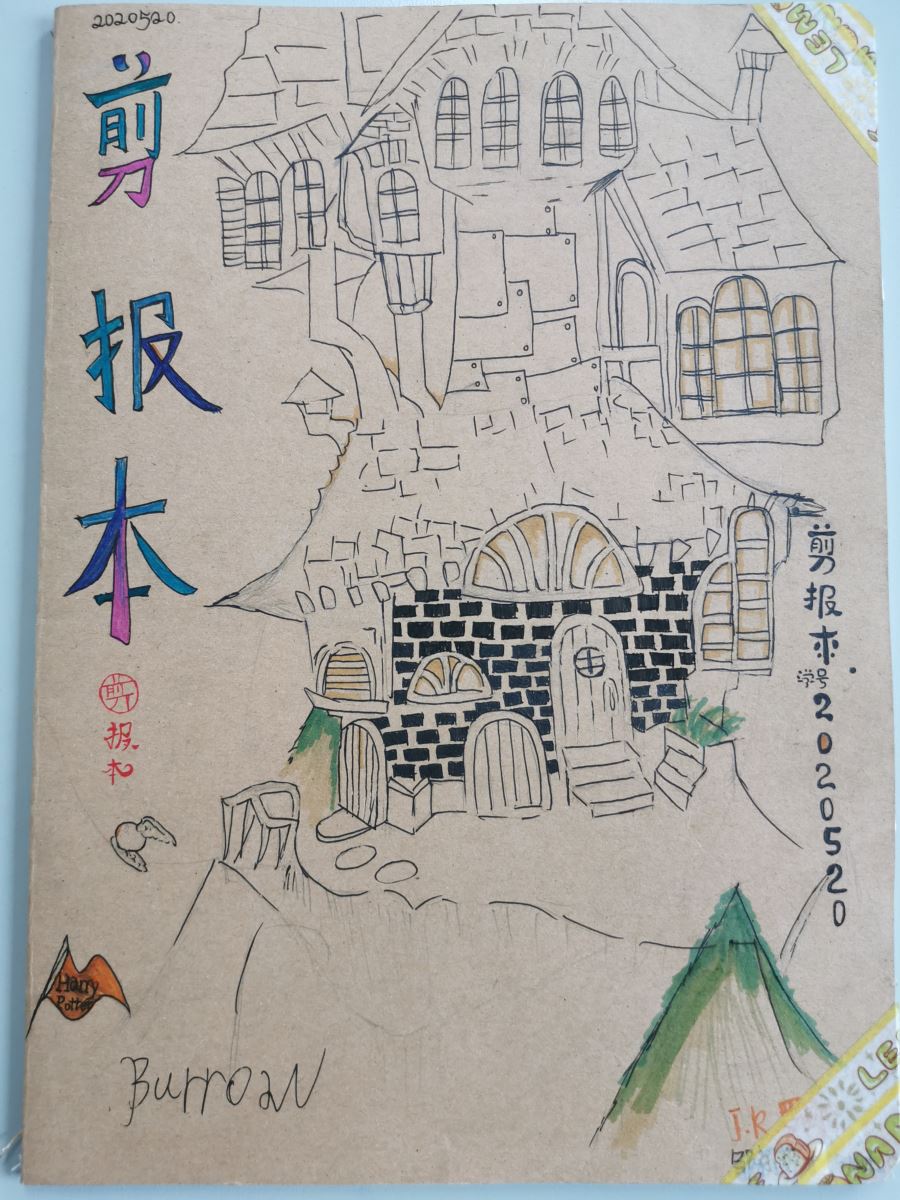 2020520.
剪报本
剪报本
剪报本
学号2020520
Harry
Potter
Burrow
J.R